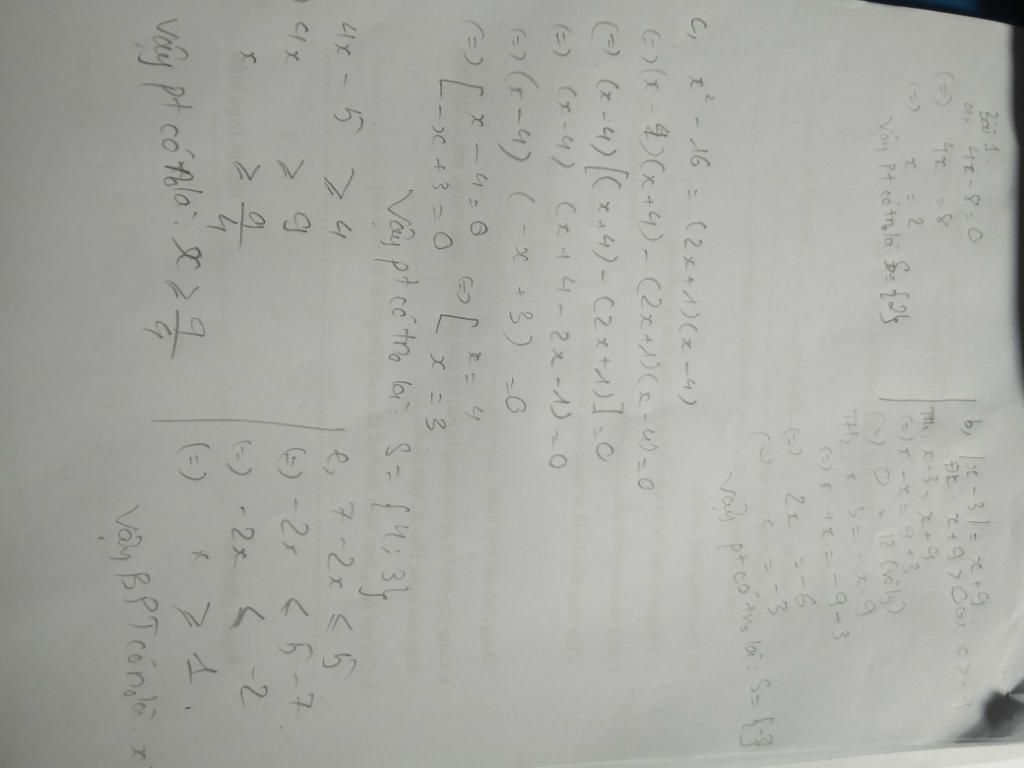 Bài 1.
a, 4x - 8 = 0
(=) 4x = 8
(=) x = 2
Vậy pt có tn0 là S = {2}
b, |x - 3| = x + 9
ĐK x + 9 > 0 (=) x >
TH1, x - 3 = x + 9
(=) x - x = 9 + 3
(=) 0 = 12 (vô lý)
TH2, x - 3 = - x - 9
(=) x + x = - 9 + 3
(=) 2x = -6
(=) x = -3
Vậy pt có tn0 là: S = {-3}
c, x² - 16 = (2x + 1)(x - 4)
(=) (x - 4)(x + 4) - (2x + 1)(x - 4) = 0
(=) (x - 4)[(x + 4) - (2x + 1)] = 0
(=) (x - 4) (x + 4 - 2x - 1) = 0
(=) (x - 4) (- x + 3) = 0
(=) [ x - 4 = 0 (=) [ x = 4
[ - x + 3 = 0 [ x = 3
Vậy pt có tn0 là: S = {4; 3}
4x - 5 ≥ 4
4x ≥ 9
x ≥ 9/4
Vậy pt có tn0 là: x ≥ 9/4
e, 7 - 2x ≤ 5
(=) - 2x ≤ 5 - 7
(=) - 2x ≤ -2
(=) x ≥ 1.
Vậy BPT có n0 là: x